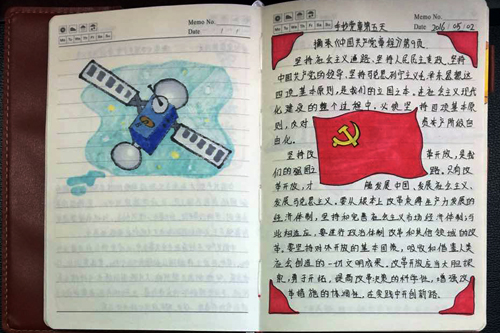 Memo No.
Date
Mo Tu We Th Fr Sa Su
Memo No.
Date 2016/05/02
Mo Tu We Th Fr Sa Su
手抄党章第五天
摘录《中国共产党章程》第9页
坚持社会主义道路、坚持人民民主专政、坚持
中国共产党的领导、坚持马克思列宁主义毛泽东思想这
四项基本原则,是我们的立国之本。在社会主义现代
化建设的整个过程中,必须坚持四项基本原
则,反对资产阶级自
由化。
坚持改革开放,是我
们的强国之路。只有改
革开放,才能发展中国、发展社会主义、
发展马克思主义。要从根本上改革束缚生产力发展的
经济体制,坚持和完善社会主义市场经济体制;与
此相适应,要进行政治体制改革和其他领域的改
革。要坚持对外开放的基本国策,吸收和借鉴人类
社会创造的一切文明成果。改革开放应当大胆探
索,勇于开拓,提高改革决策的科学性,增强改
革措施的协调性,在实践中开创新路。